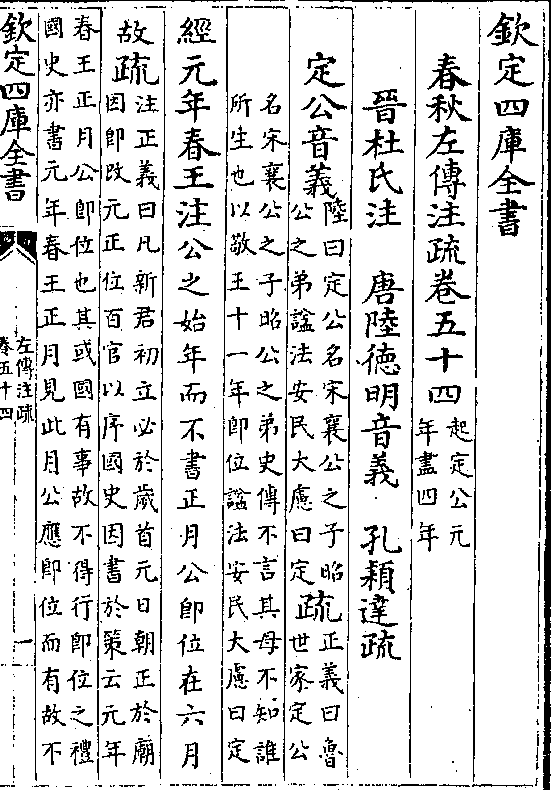 欽定四庫全書
春秋左傳注疏卷五十四
起定公元
年盡四年
晉杜氏注　唐陸德明音義　孔穎達疏
定公音義
陸曰定公名宋襄公之子昭
公之弟諡法安民大慮曰定
疏
正義曰魯
世家定公
名宋襄公之子昭公之弟史傳不言其母不知誰
所生也以敬王十一年即位諡法安民大慮曰定
經元年春王注公之始年而不書正月公即位在六月
故疏
注正義曰凡新君初立必於歲首元日朝正於廟
因即改元正位百官以序國史因書於策云元年
春王正月公即位也其或國有事故不得行即位之禮
國史亦書元年春王正月見此月公應即位而有故不
欽定四庫全書
左傳注疏
卷五十四
一